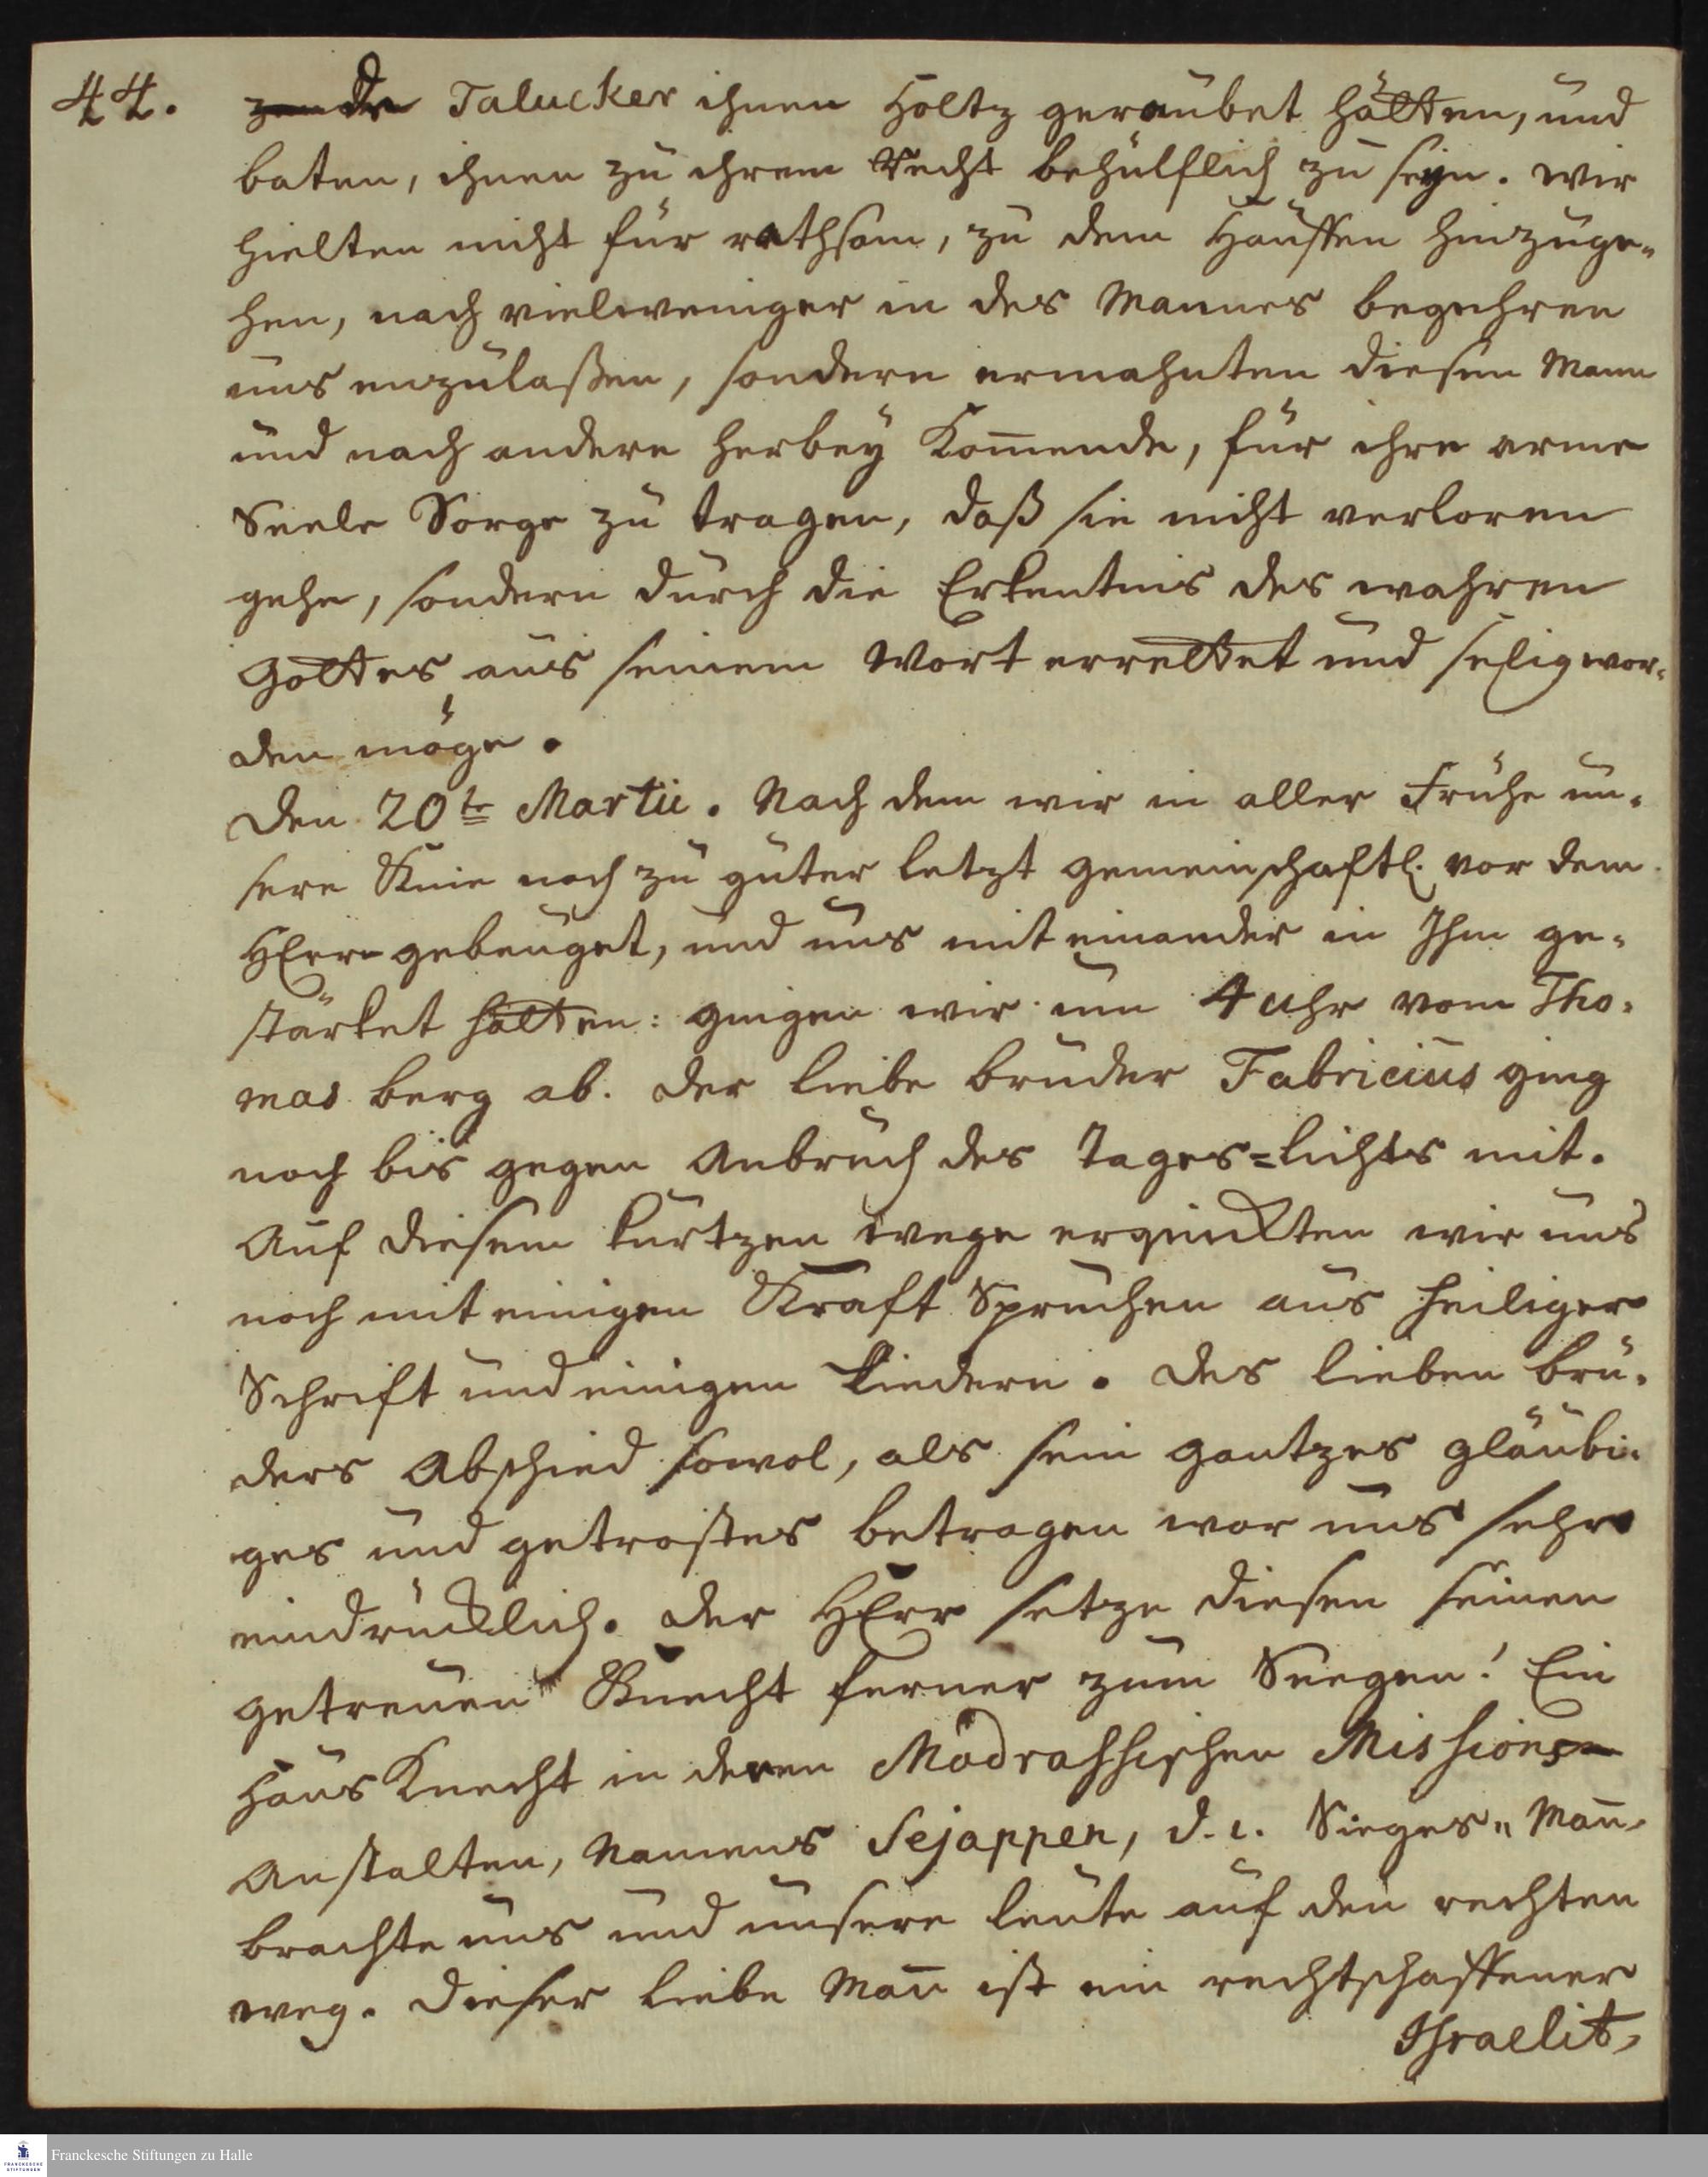 44. die Talucker ihnen Holtz geraubet hätten, und
baten, ihnen zu ihrem Recht behülflich zu seyn. Wir
hielten nicht für rathsam, zu dem Hauffen hinzuge-
hen, noch vielweniger in des Mannes begehren
uns einzulaßen, sondern ermahnten diesen Mann
und noch andere herbey Kom̄ende, für ihre arme
Seele Sorge zu tragen, daß sie nicht verloren
gehe, sondern durch die Erkentnis des wahren
Gottes aus seinem Wort errettet und selig wer-
den möge.
Den 20te Martii. Nach dem wir in aller Frühe un-
sere Knie noch zu guter letzt gemeinschaftl. vor dem
HErrn gebeuget, und uns mit einander in Ihm ge-
stärket hatten: gingen wir um 4 Uhr vom Tho-
mas berg ab. Der liebe bruder Fabricius ging
noch bis gegen Anbruch des Tages=lichts mit.
Auf diesem kurtzen Wege erquickten wir uns
noch mit einigen Kraft Sprüchen aus heiliger
Schrift und einigen Liedern. Des lieben bru-
ders Abschied sowol, als sein gantzes gläubi-
ges und getrostes betragen war uns sehr
eindrücklich. Der HErr setze diesen seinen
getreuen Knecht ferner zum Seegen! Ein
Haus Knecht in denen Madrassischen Missions-
Anstalten, Namens Sejappen, d. i. Sieges=Man̄
brachte uns und unsere leute auf den rechten
weg. Dieser liebe Man̄ ist ein rechtschaffener
Israelit,
Franckesche Stiftungen zu Halle
FRANCKESCHE STIFTUNGEN